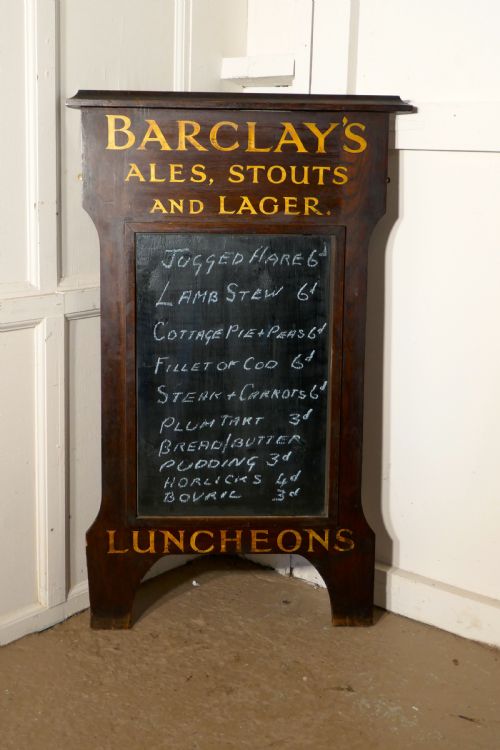 BARCLAY'S
ALES, STOUTS
AND LAGER.
JUGGED HARE 6d
LAMB STEW 6d
COTTAGE PIE + PEAS 6d
FILLET OF COD 6d
STEAK + CARROTS 6d
PLUM TART 3d
BREAD/BUTTER
PUDDING 3d
HORLICKS 4d
BOVRIL 3d
LUNCHEONS